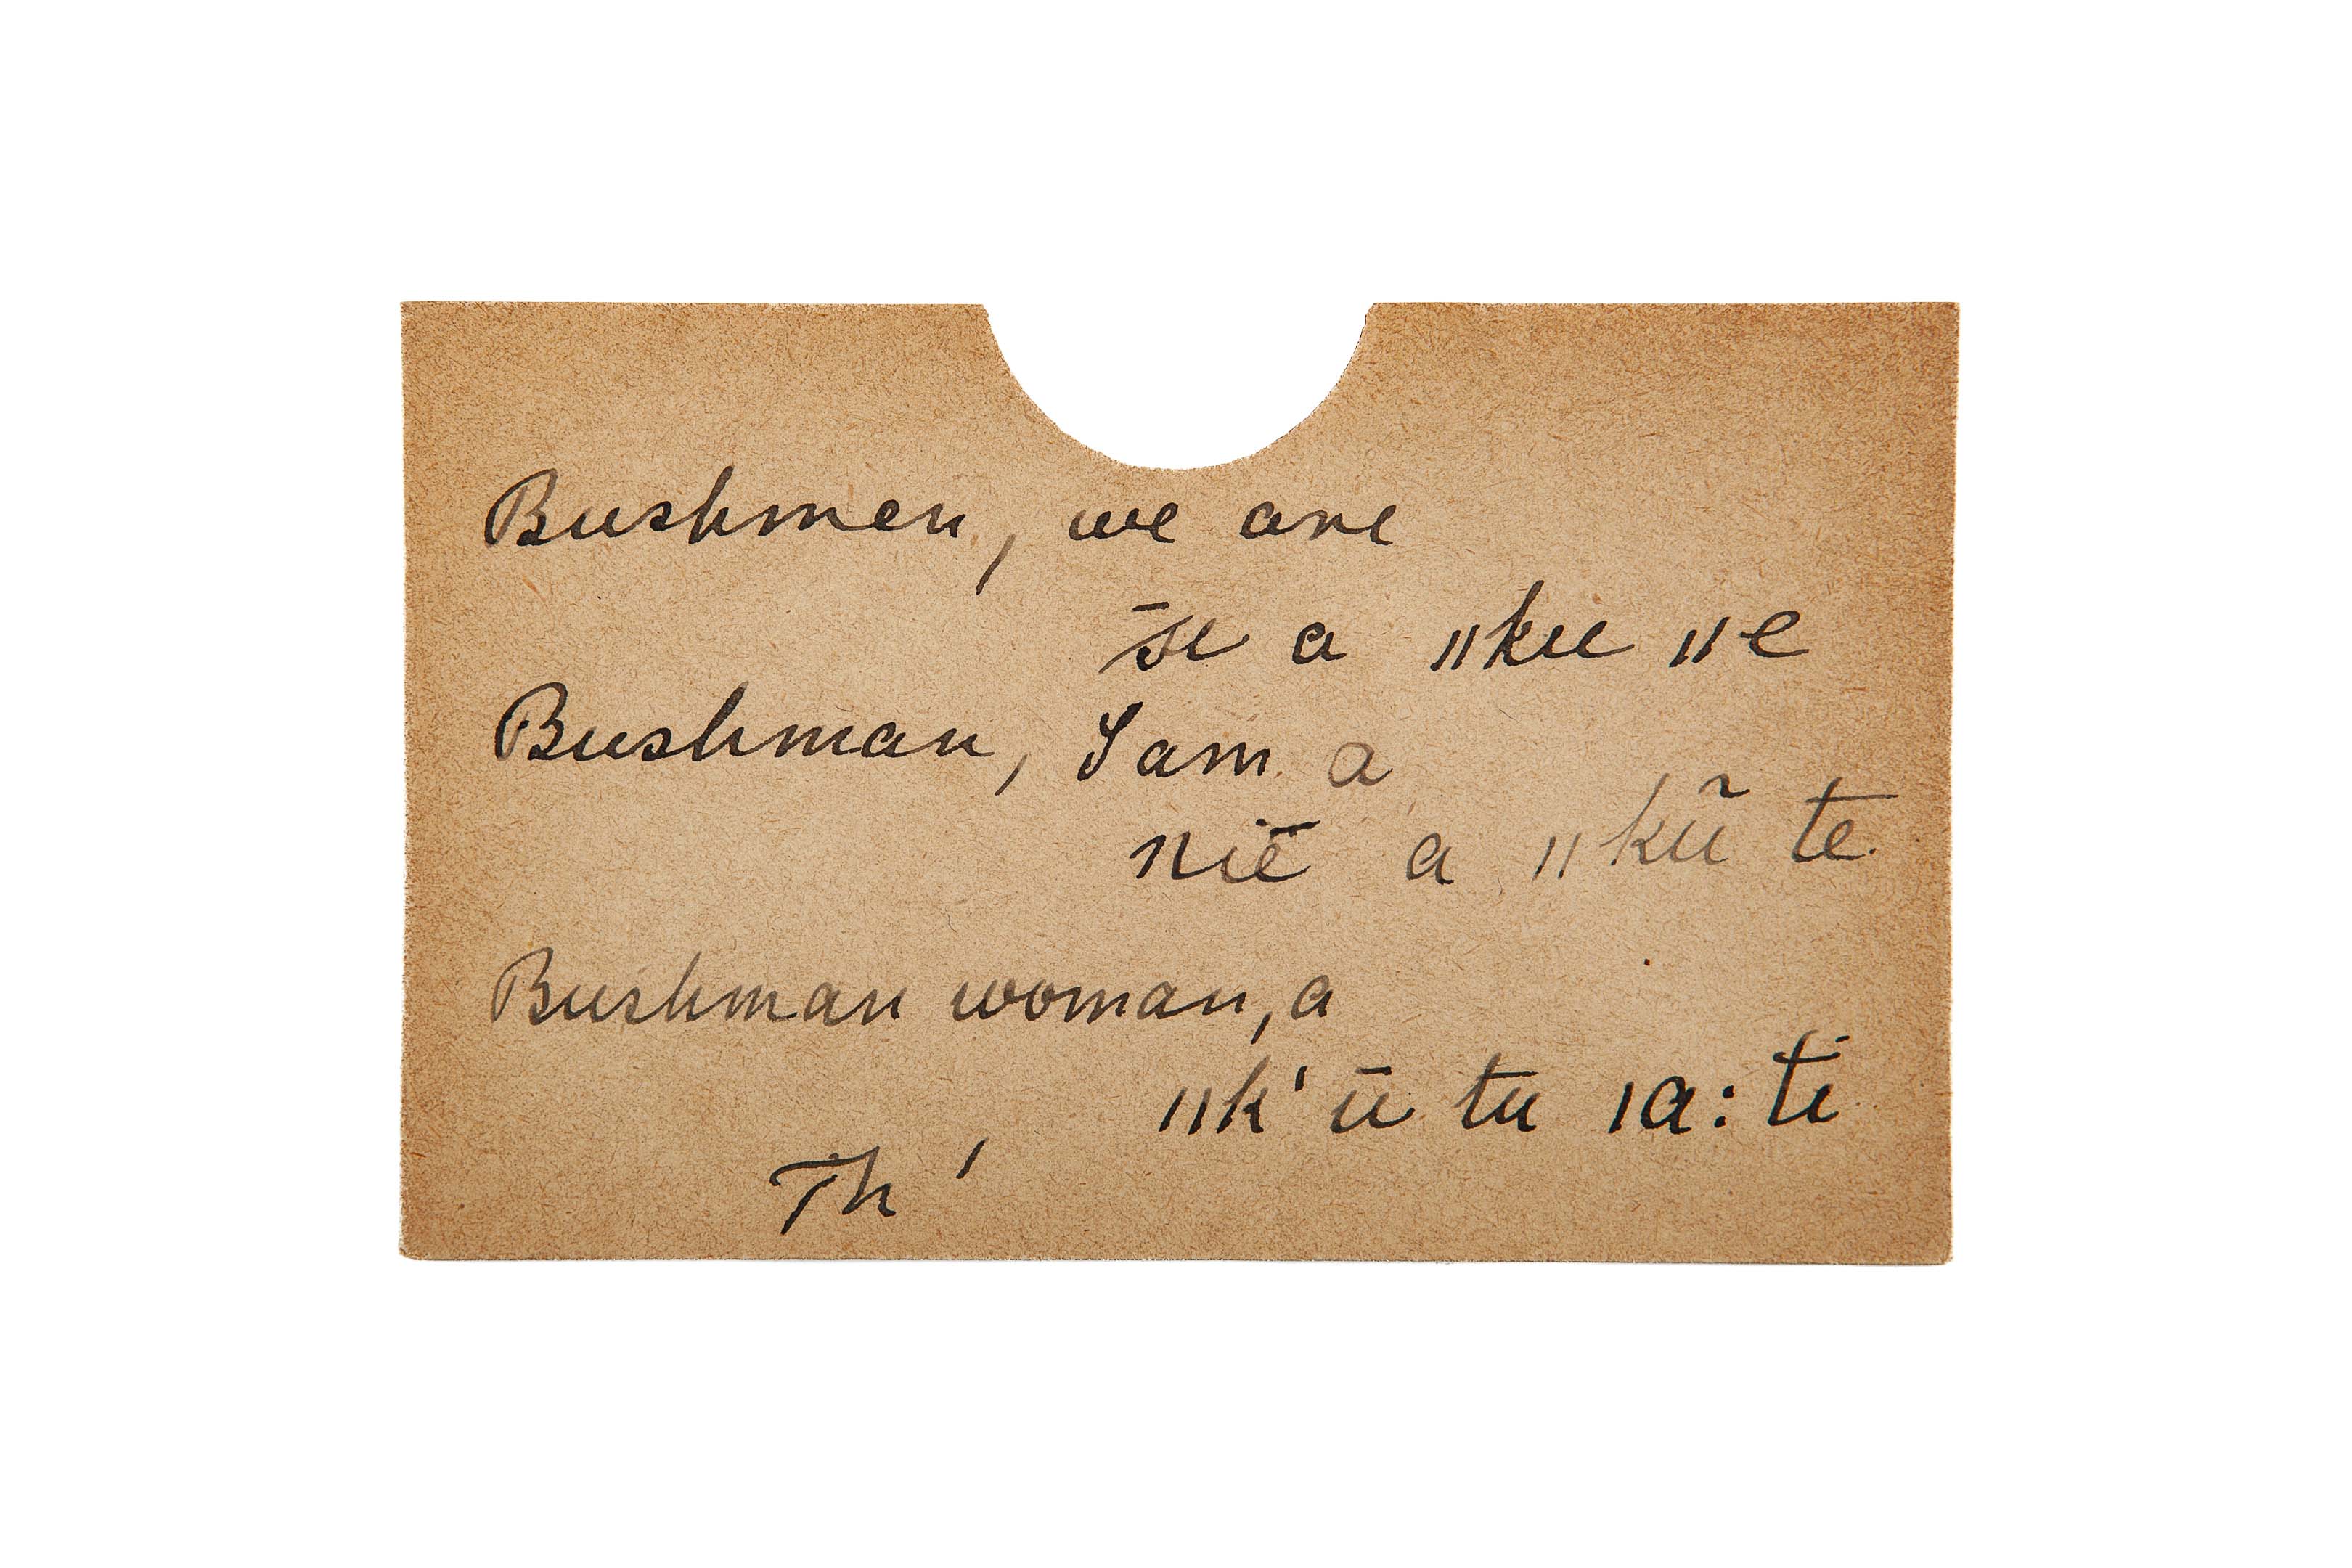 Bushmen, we are
s̄e a ǁku ǁe
Bushman, I am a
niē a ǁkũ te.
Bushman woman, a
ǁk' ū tu ǀa: ti
Th'